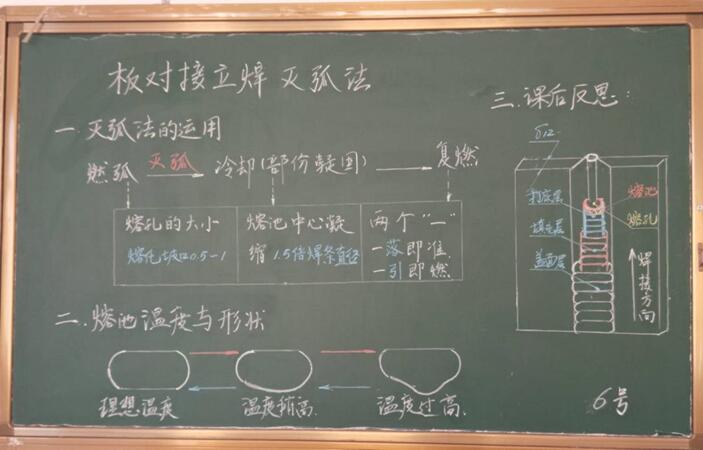 板对接立焊 灭弧法
一.灭弧法的运用
燃弧 灭弧 冷却(部份凝固) 复燃
熔孔的大小
熔化坡口0.5-1
熔池中心凝
缩 1.5倍焊条直径
两个"一"
一落即准
一引即燃
二.熔池温度与形状
理想温度 温度稍高. 温度过高.
三.课后反思:
打底层
填充层
盖面层
熔池
熔孔
焊接方向
6号